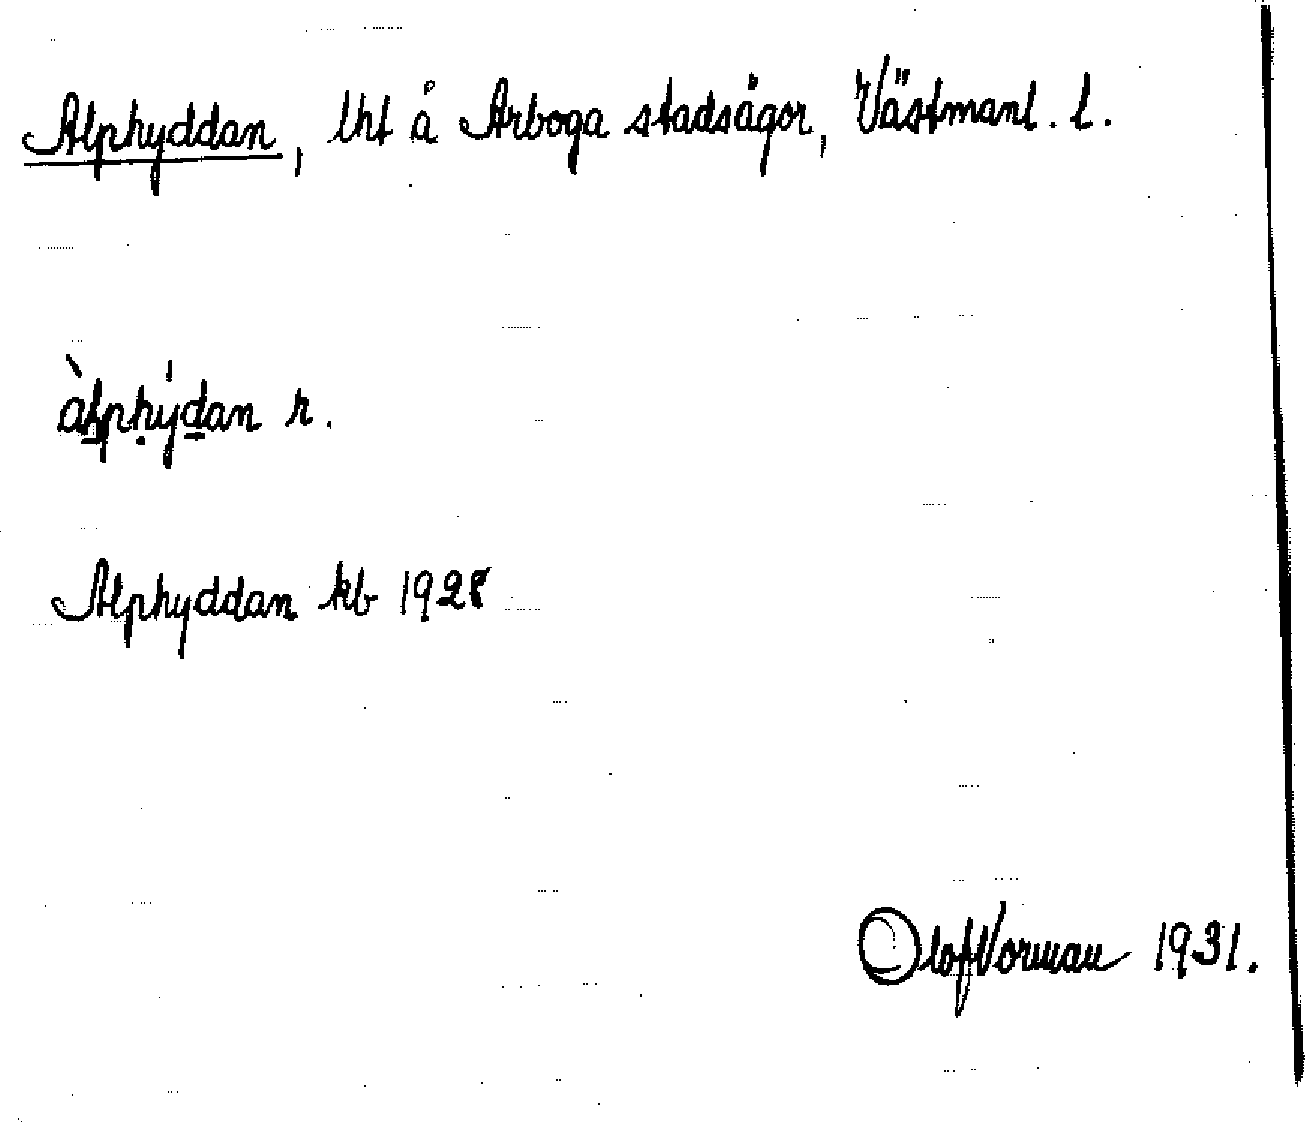 Alphyddan, lht å Arboga stadsägor, Västmanl. l.
àlphy̍dan r.
Alphyddan kb 1928
Olof Vorman 1931.